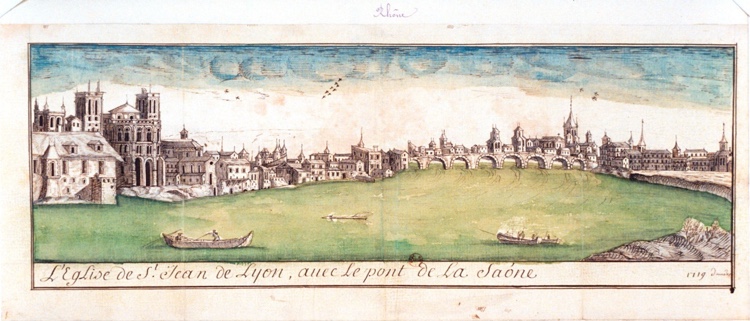 Rhône
L'Eglise de S.t Jean de Lyon, avec le pont de la Saône
1719